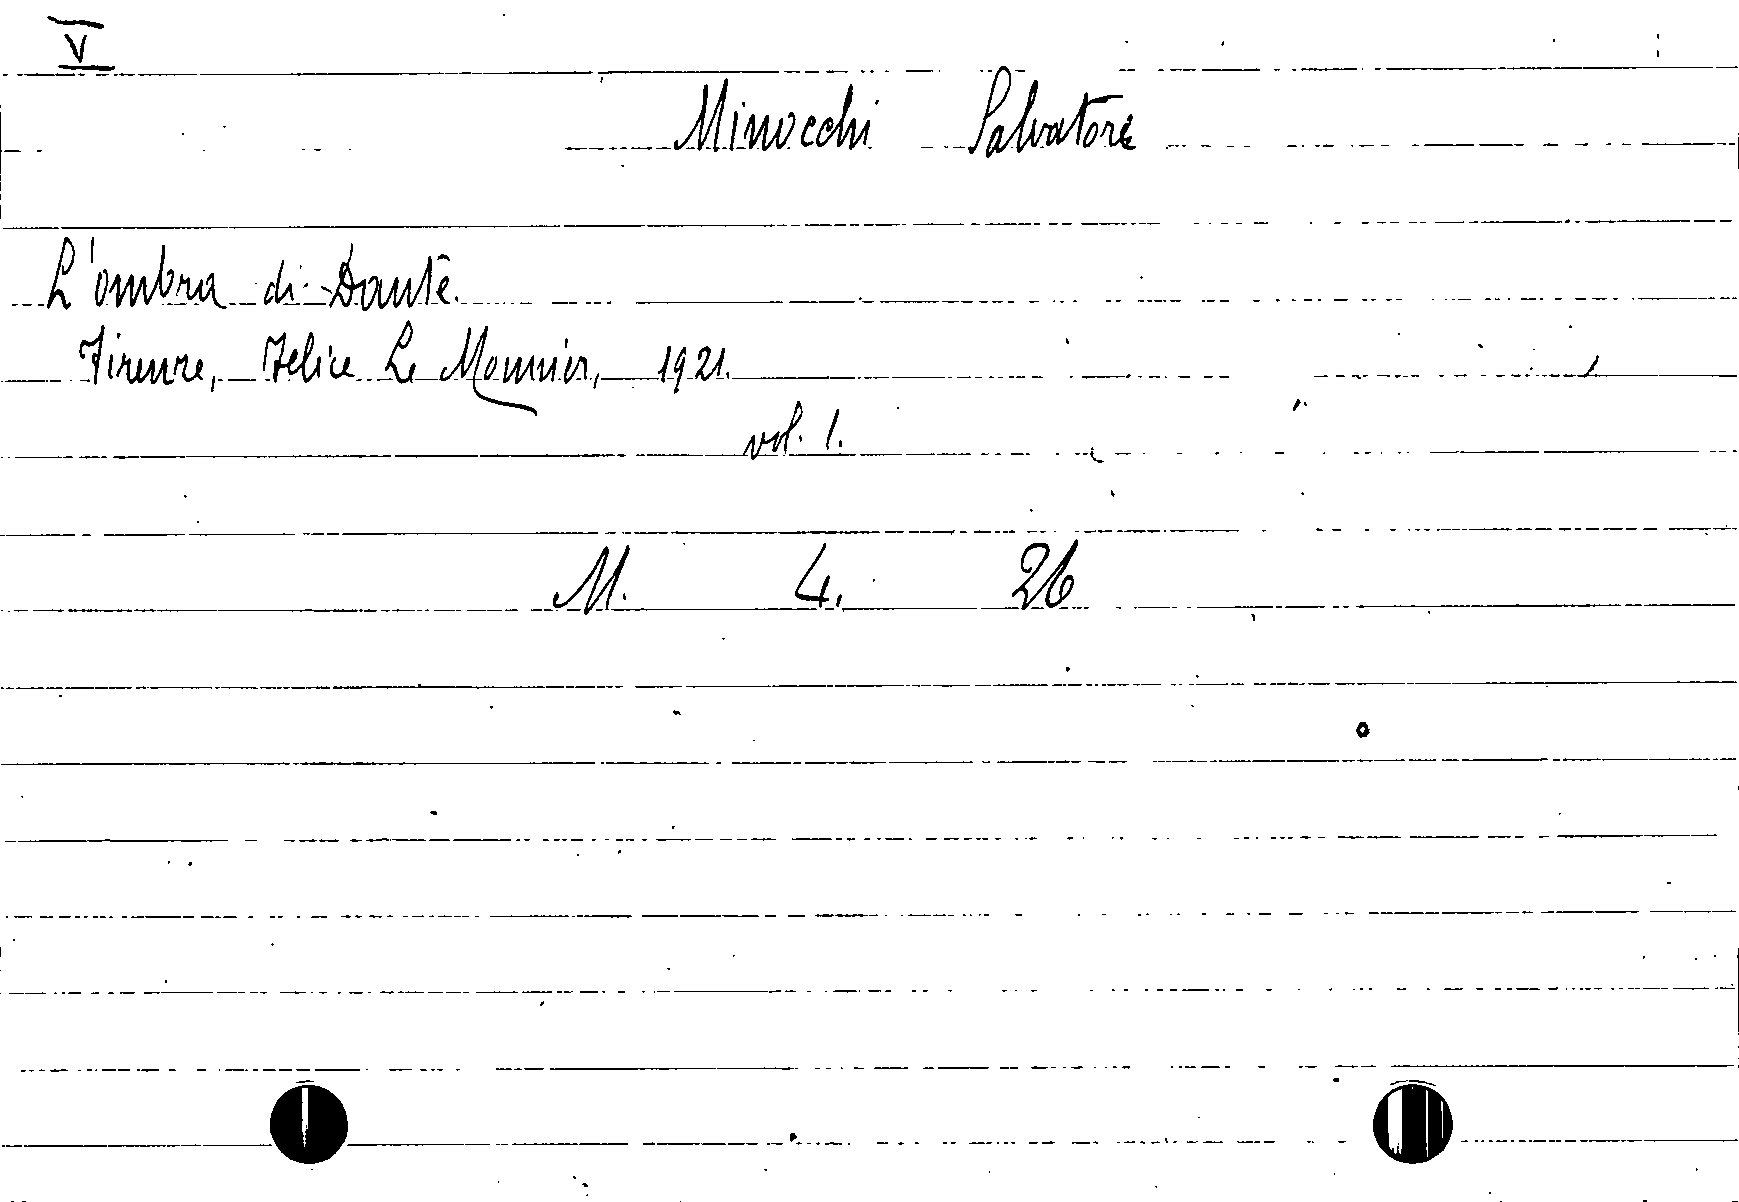 V
Minocchi Salvatore
L'ombra di Dante.
Firenze, Felice Le Monnier, 1921.
vol. 1.
M. 4. 26